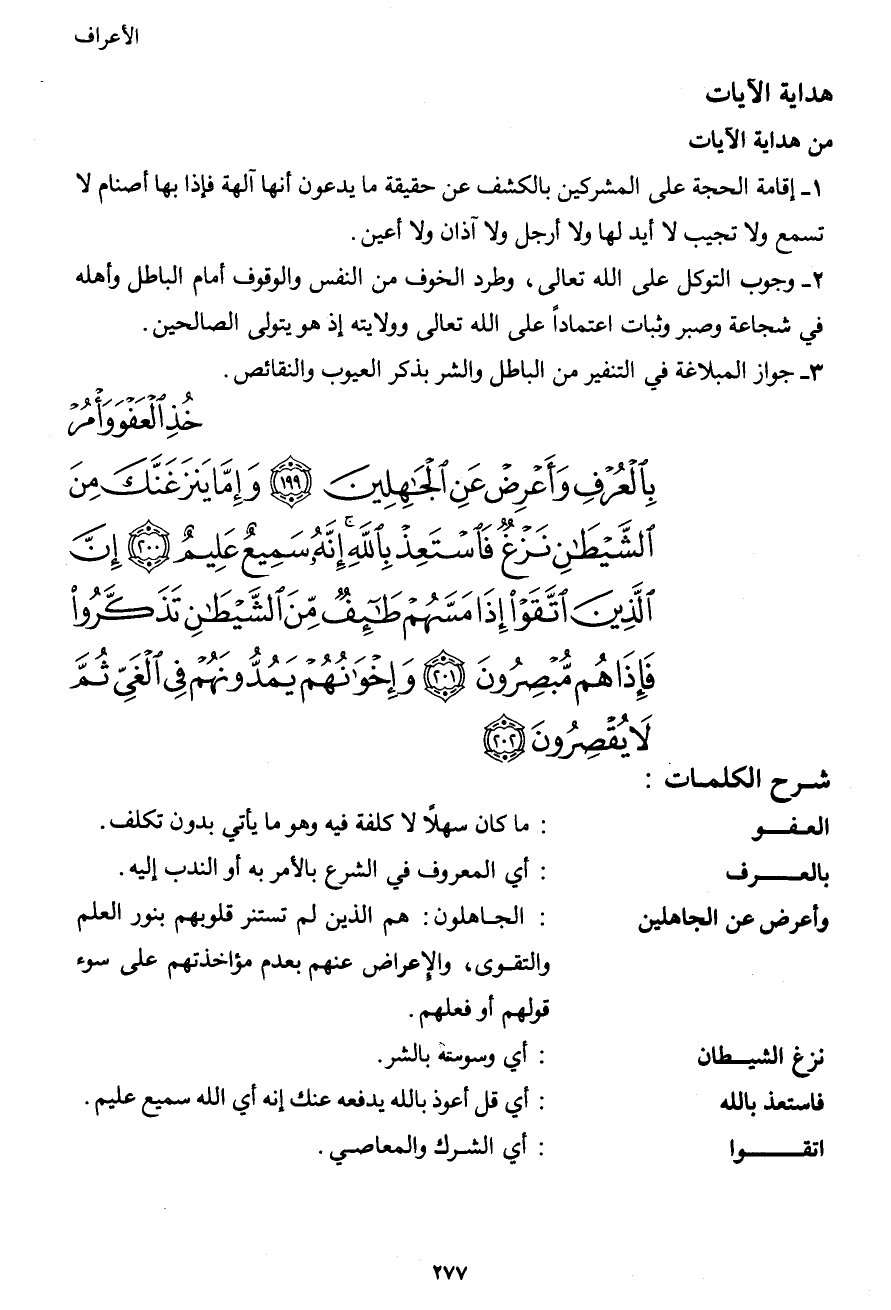 الأعراف
هداية الآيات
من هداية الآيات
١ـ إقامة الحجة على المشركين بالكشف عن حقيقة ما يدعون أنها آلهة فإذا بها أصنام لا
تسمع ولا تجيب لا أيد لها ولا أرجل ولا آذان ولا أعين.
٢ـ وجوب التوكل على الله تعالى، وطرد الخوف من النفس والوقوف أمام الباطل وأهله
في شجاعة وصبر وثبات اعتماداً على الله تعالى وولايته إذ هو يتولى الصالحين.
٣ـ جواز المبلاغة في التنفير من الباطل والشر بذكر العيوب والنقائص.
خُذِ ٱلْعَفْوَ وَأْمُرْ
بِٱلْعُرْفِ وَأَعْرِضْ عَنِ ٱلْجَٰهِلِينَ ١٩٩ وَإِمَّا يَنزَغَنَّكَ مِنَ
ٱلشَّيْطَٰنِ نَزْغٌ فَٱسْتَعِذْ بِٱللَّهِ ۚ إِنَّهُۥ سَمِيعٌ عَلِيمٌ ٢٠٠ إِنَّ
ٱلَّذِينَ ٱتَّقَوْا۟ إِذَا مَسَّهُمْ طَٰٓئِفٌ مِّنَ ٱلشَّيْطَٰنِ تَذَكَّرُوا۟
فَإِذَا هُم مُّبْصِرُونَ ٢٠١ وَإِخْوَٰنُهُمْ يَمُدُّونَهُمْ فِى ٱلْغَىِّ ثُمَّ
لَا يُقْصِرُونَ ٢٠٢
شـرح الكلمـات :
العـفــو : ما كان سهلًا لا كلفة فيه وهو ما يأتي بدون تكلف.
بالعــــرف : أي المعروف في الشرع بالأمر به أو الندب إليه.
وأعرض عن الجاهلين : الجـاهلون: هم الذين لم تستنر قلوبهم بنور العلم
والتقـوى، والإعراض عنهم بعدم مؤاخذتهم على سوء
قولهم أو فعلهم.
نزغ الشيــطان : أي وسوسته بالشر.
فاستعذ بالله : أي قل أعوذ بالله يدفعه عنك إنه أي الله سميع عليم.
اتقـــــوا : أي الشـرك والمعاصـي.
٢٧٧